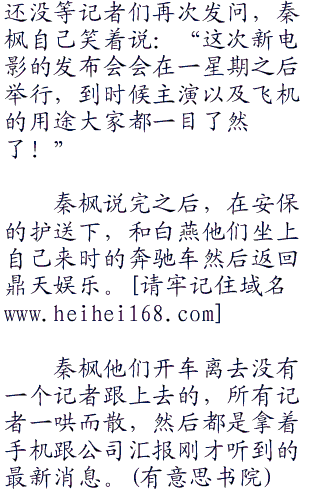 还没等记者们再次发问，秦
枫自己笑着说：“这次新电
影的发布会会在一星期之后
举行，到时候主演以及飞机
的用途大家都一目了然
了！”
秦枫说完之后，在安保
的护送下，和白燕他们坐上
自己来时的奔驰车然后返回
鼎天娱乐。[请牢记住域名
www.heihei168.com]
秦枫他们开车离去没有
一个记者跟上去的，所有记
者一哄而散，然后都是拿着
手机跟公司汇报刚才听到的
最新消息。(有意思书院)